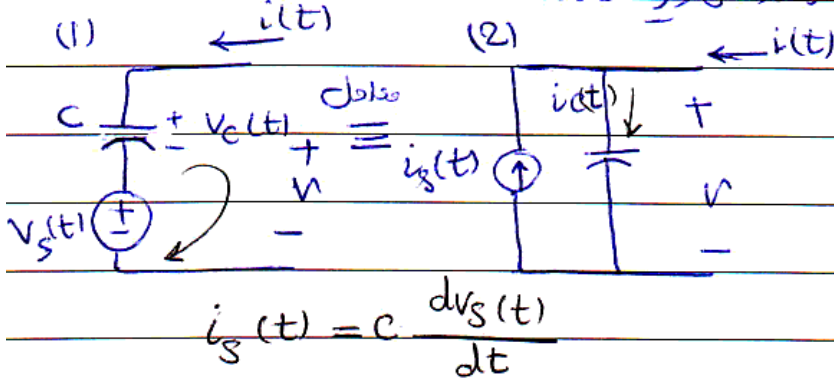 (1) i(t) (2) i(t)
C + - v_c(t) معادل ≡ i_s(t) i_c(t) +
v_s(t) + - + v - v -
i_s(t) = C dv_s(t)/dt